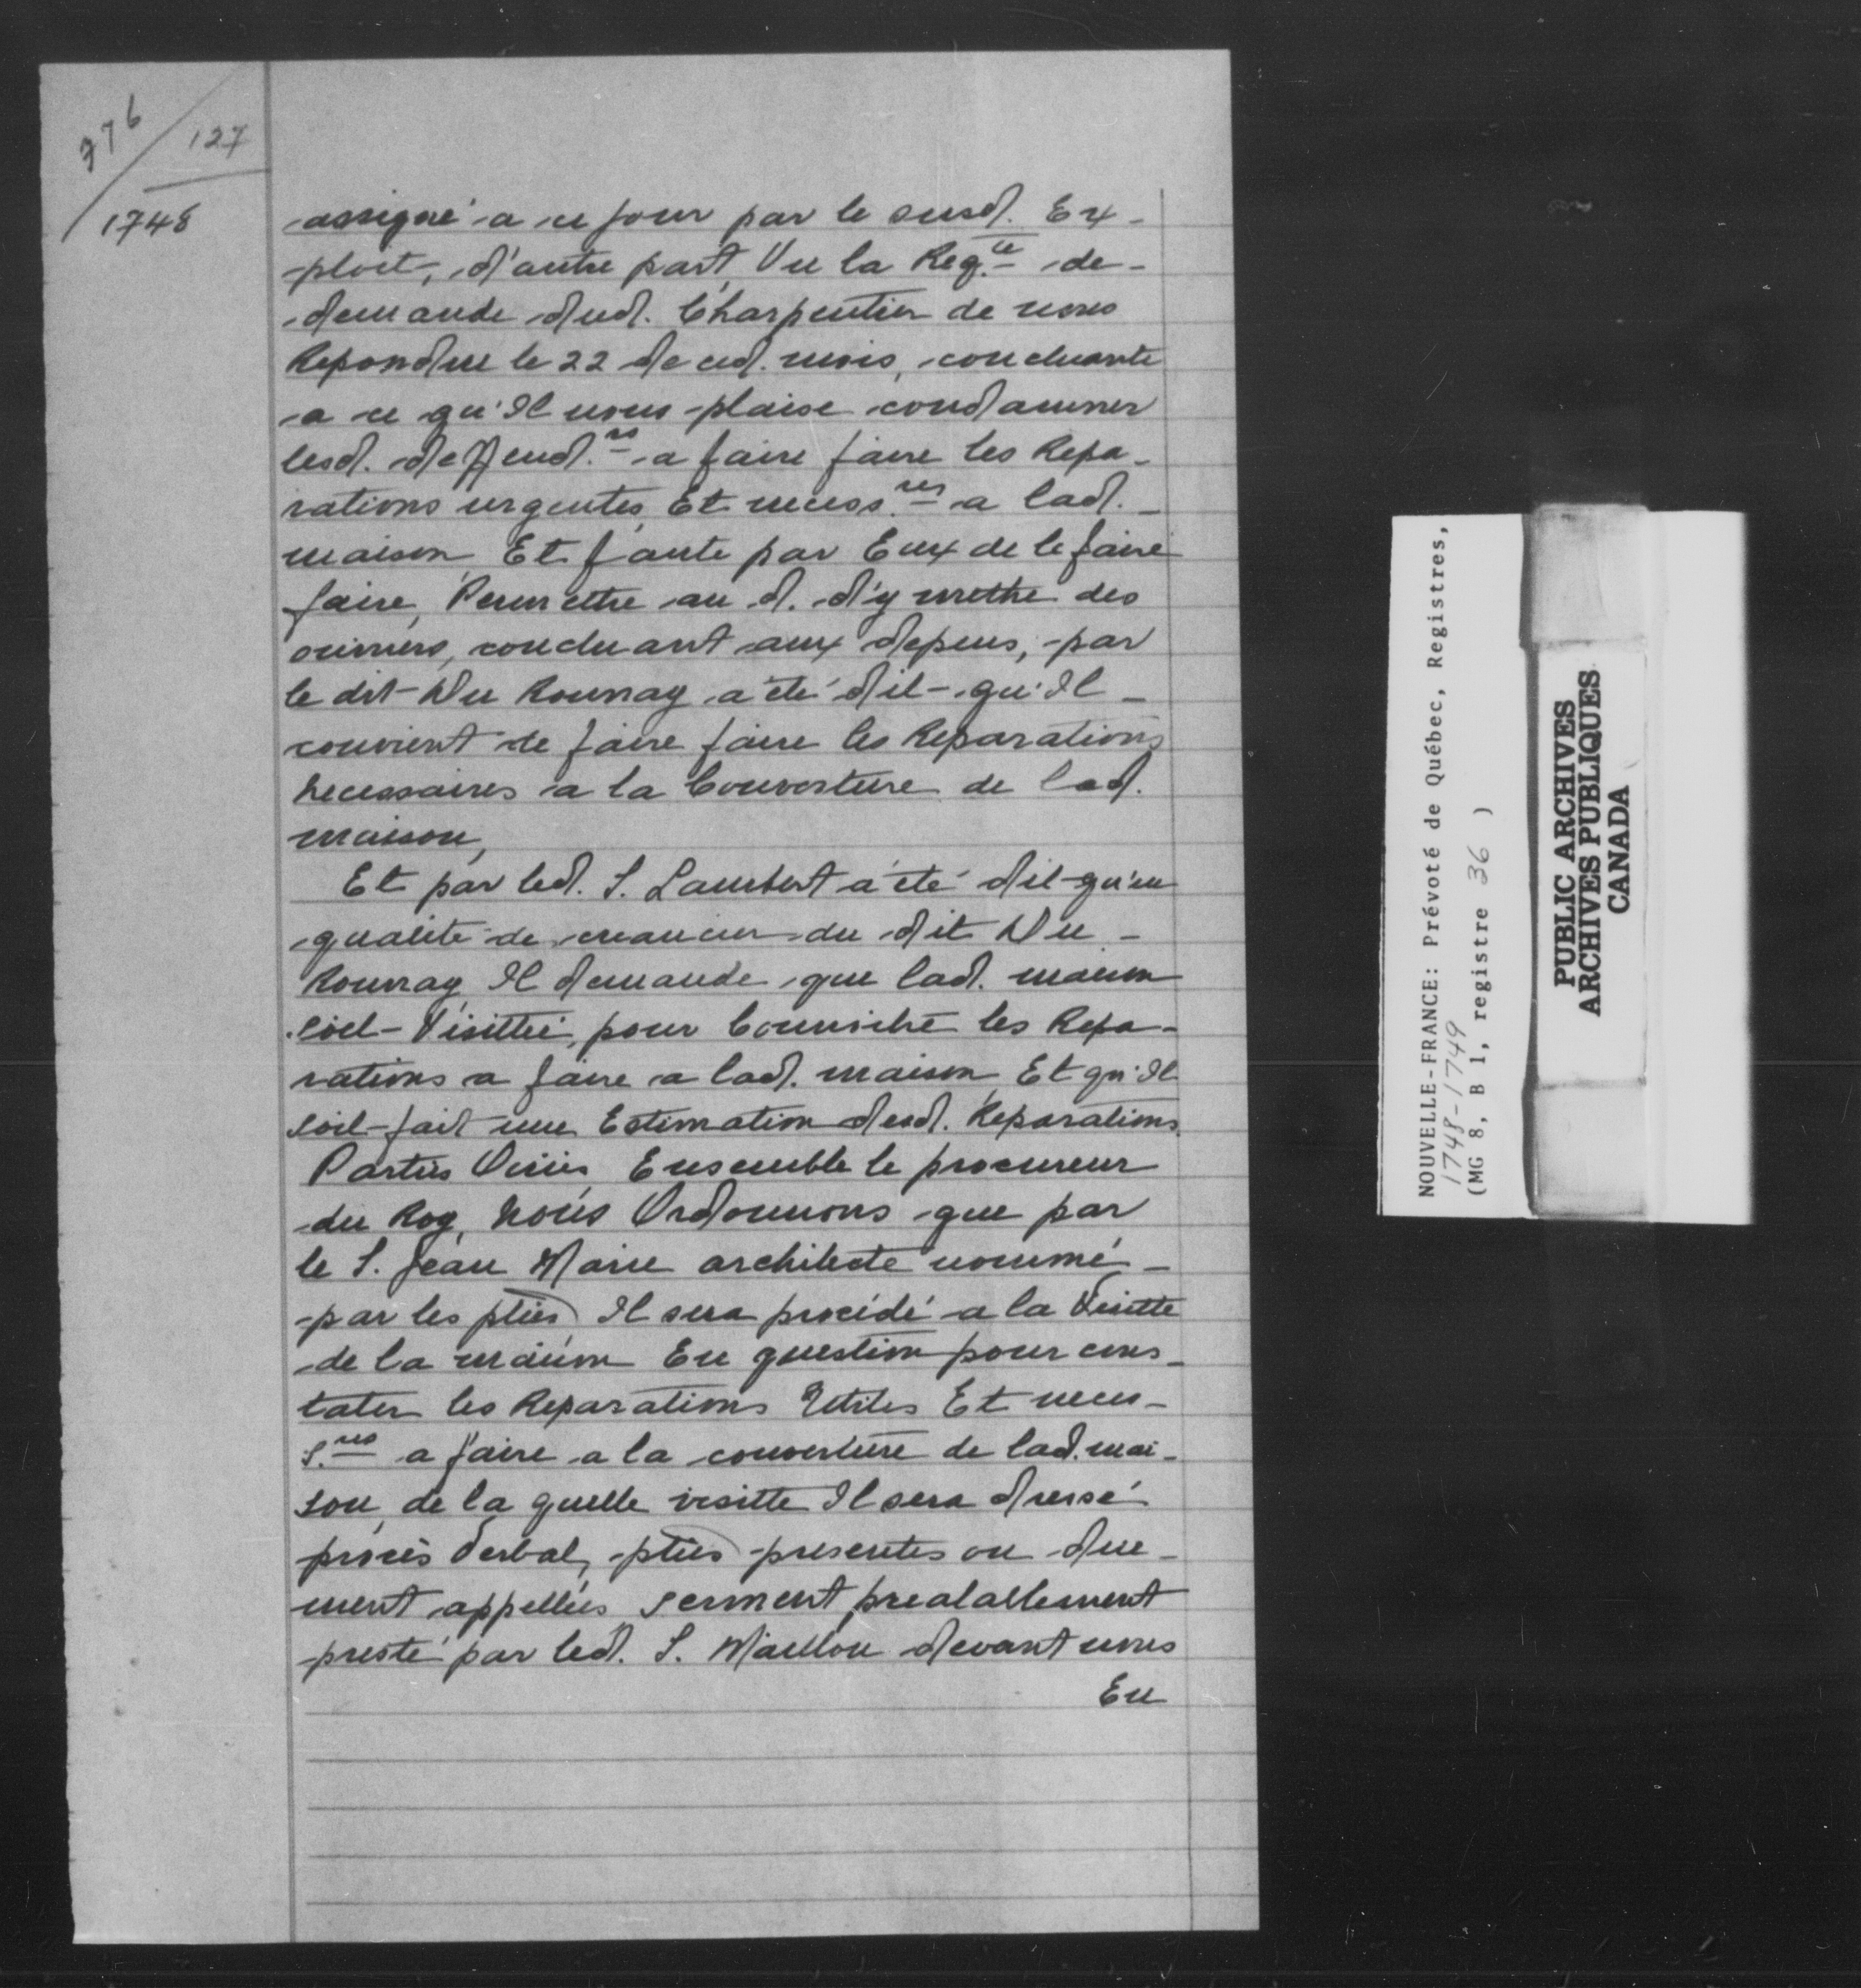 376
127
1748
assigné a ce jour par le susd. Ex-
ploit, d'autre part, Vu la Reqte de-
demande dud. Charpentier de nous
Repondue le 22 de ced. mois, concluante
a ce qu'Il nous plaise condamner
lesd. deffend.rs a faire faire les Repa-
rations urgentes Et necess.res a lad. -
maison Et faute par Eux de le faire
faire, Permettre au d. d'y mettre des
ouvriers, concluant aux depens, par
le dit Du Rouvray a été dit qu'Il -
convient de faire faire les Reparations
necessaires a la Couverture de lad.
maison,
Et par led. S. Lambert a été dit qu'en
qualité de creancier du dit Du -
Rouvray Il demande que lad. maison
soit Visittée, pour Connoitre les Repa-
rations a faire a lad. maison Et qu'Il
soit fait une Estimation desd. Reparations
Parties Ouïes Ensemble le procureur
du Roy, Nous Ordonnons que par
le S. Jean Marie architecte nommé -
par les pties Il sera procédé a la Visitte
de la maison En question pour cons-
tater les Reparations Utiles Et neces-
s.res a faire a la couverture de lad. mai-
son, de la quelle visitte Il sera dressé
procès Verbal, pties presentes ou due-
ment appellées serment prealablement
presté par led. S. Maillou devant nous
En
NOUVELLE-FRANCE: Prévoté de Québec, Registres,
1748-1749
(MG 8, B 1, registre 36 )
PUBLIC ARCHIVES
ARCHIVES PUBLIQUES
CANADA